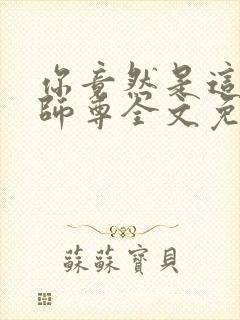 你竟然是這
師尊全文免
蘇蘇寶貝